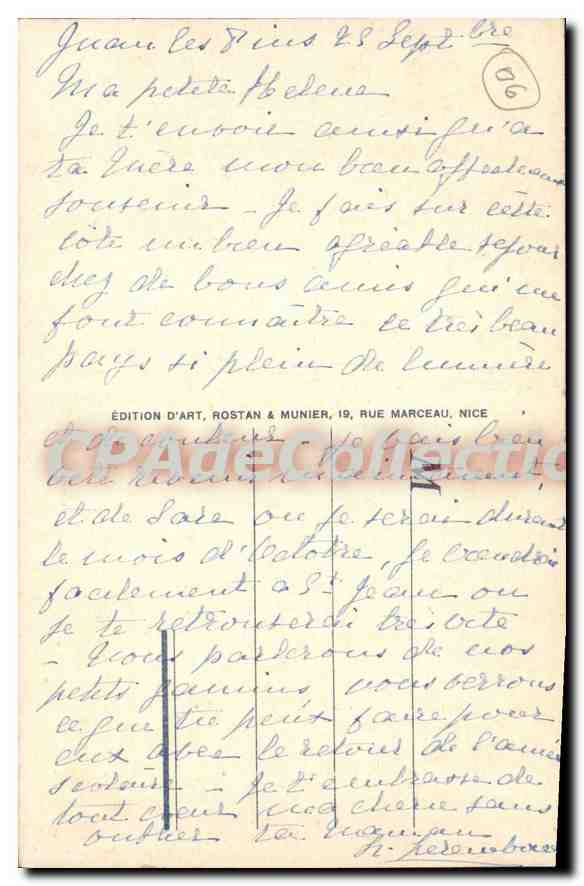 Juan les Pins 25 Septbre
06
Ma petite Helene
Je t'envoie ainsi qu'a
ta Mère mon bon affectueux
souvenir - Je fais sur cette
côte un bien agréable sejour
chez de bons amis qui me
font connaître ce très beau
pays si plein de lumière
ÉDITION D'ART, ROSTAN & MUNIER, 19, RUE MARCEAU, NICE
et de couleur - Je vais bien
CPAdeCollection
et de Sare ou je serai durant
le mois d'Octobre, je viendrai
facilement a St Jean ou
je te retrouverai tres vite
- Nous parlerons de nos
petits gamins, nous verrons
ce que tu peux faire pour
eux avec le retour de l'année
scolaire - Je t'embrasse de
tout coeur ma chere sans
oublier ta maman